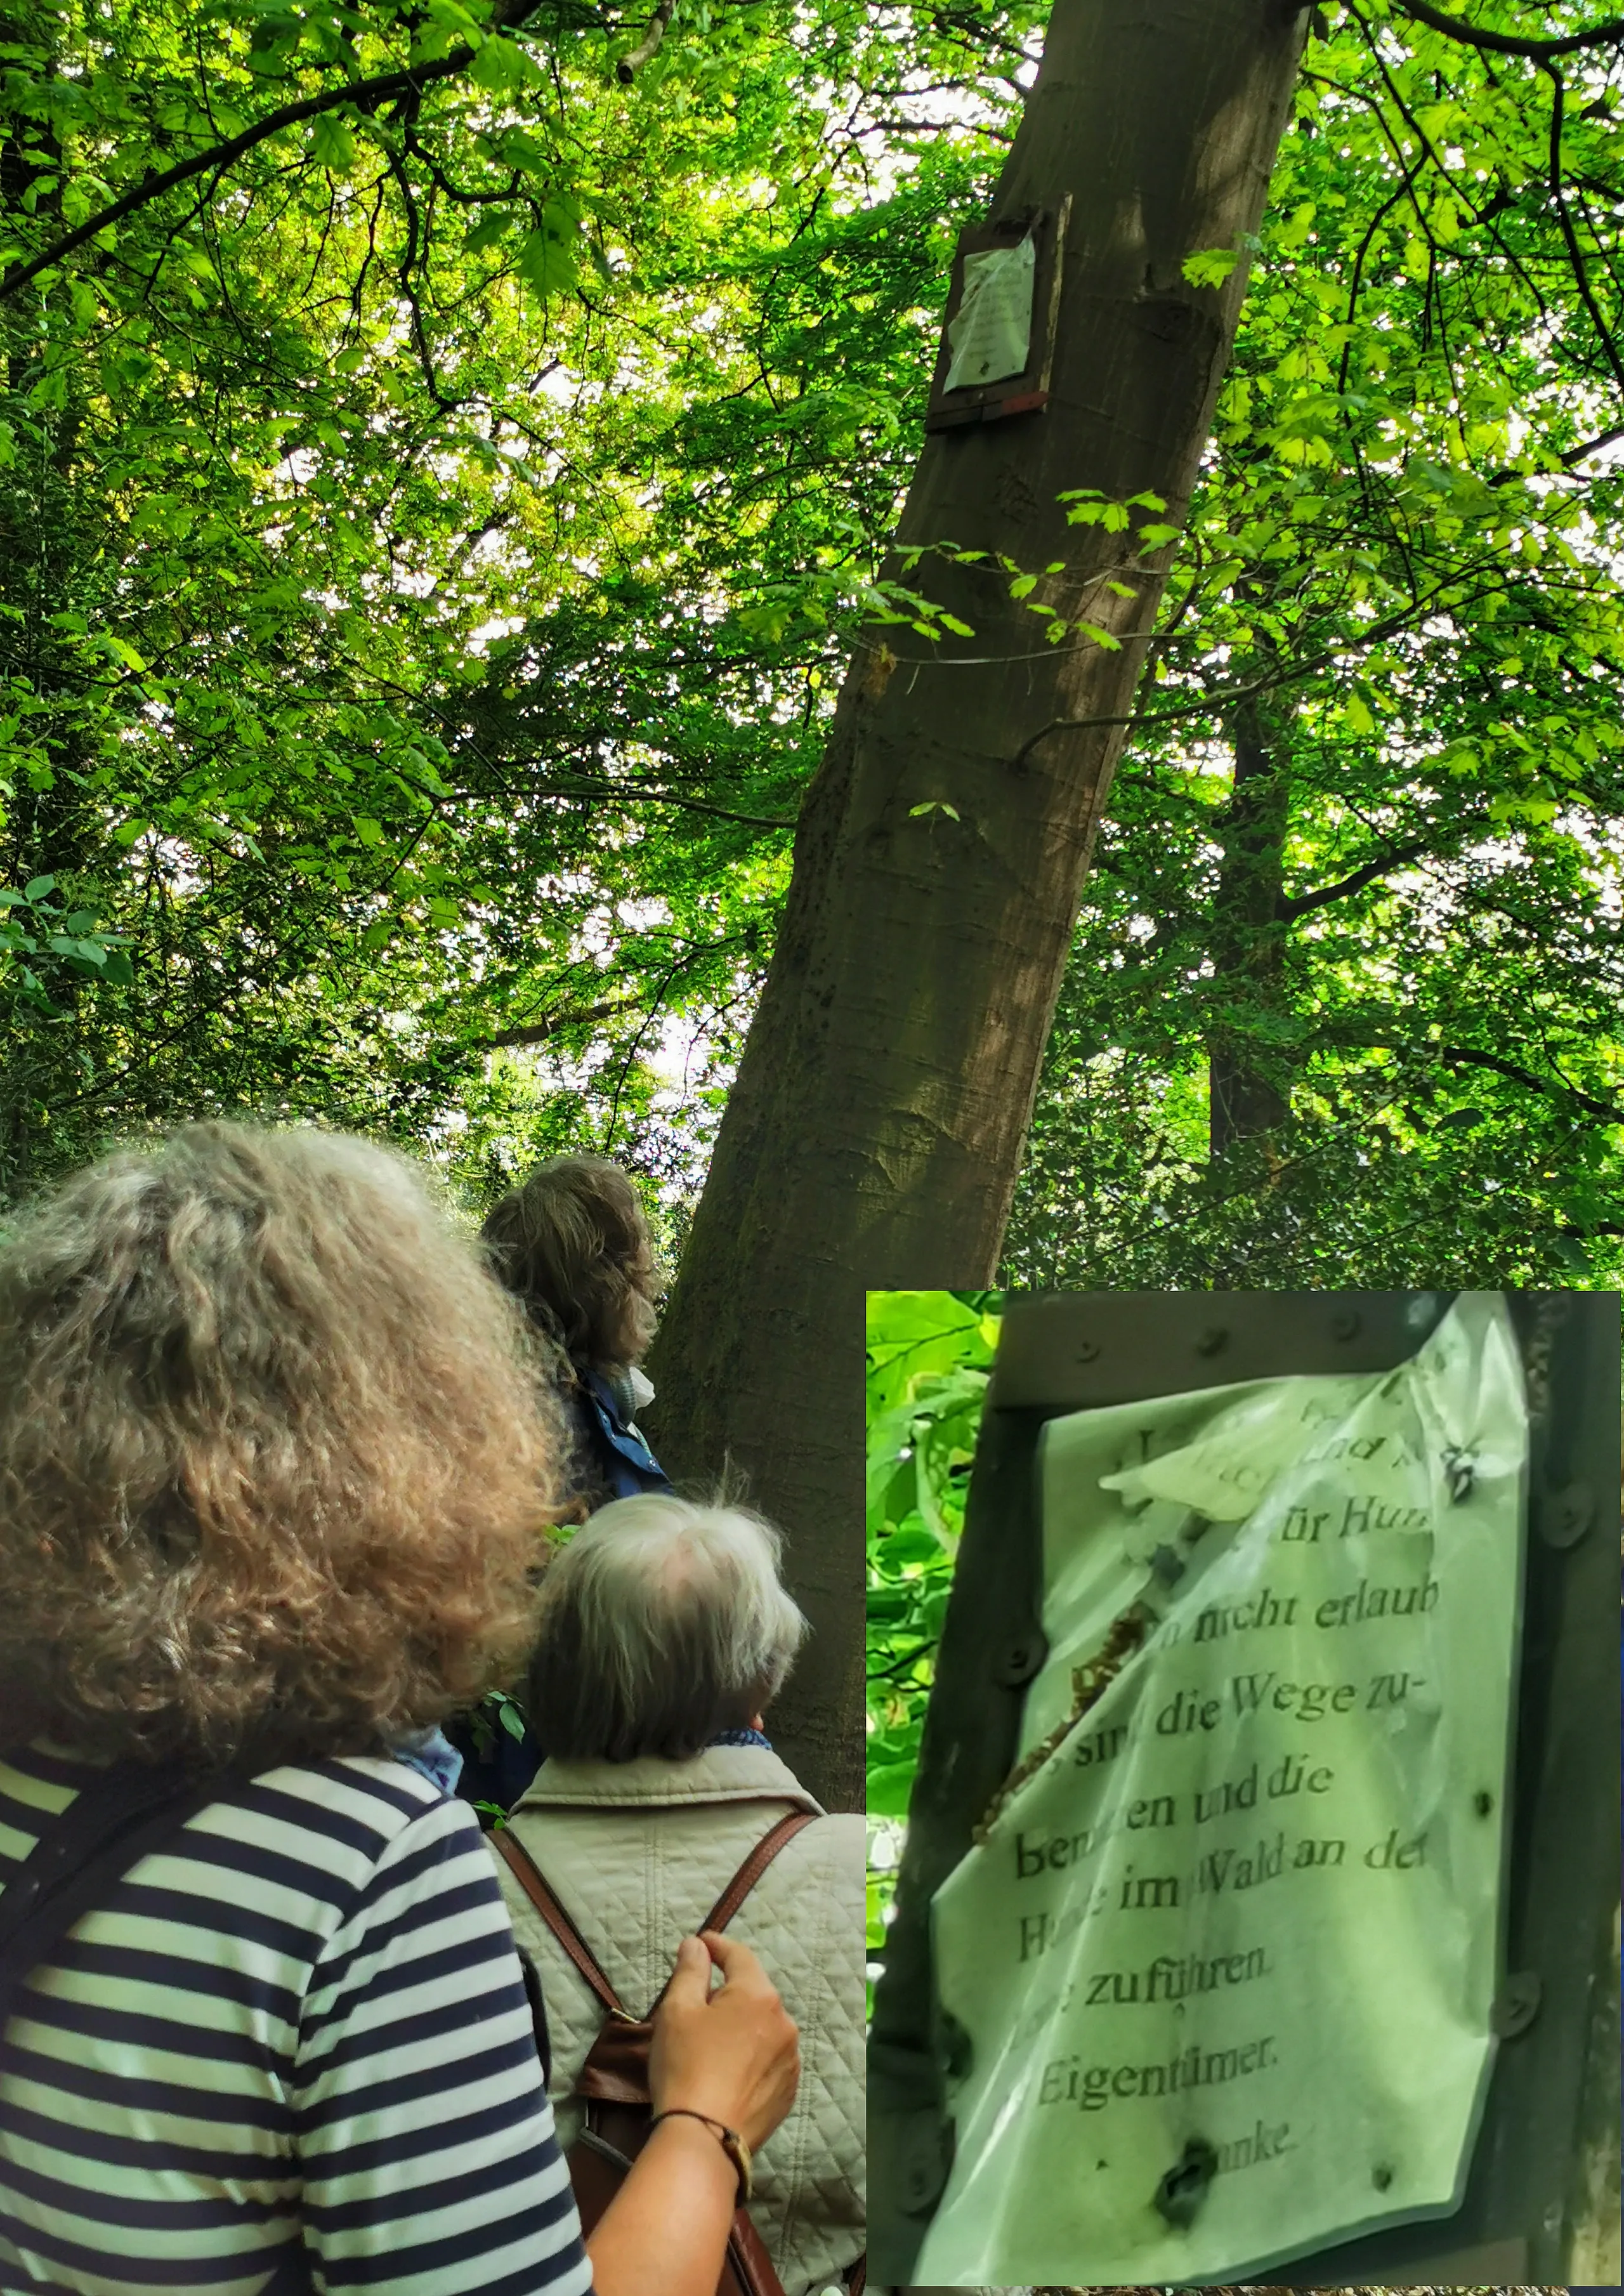 und
ür Hun
n nicht erlaub
sin die Wege zu-
ben en und die
H e im Wald an der
zuführen.
Eigentümer.
anke.